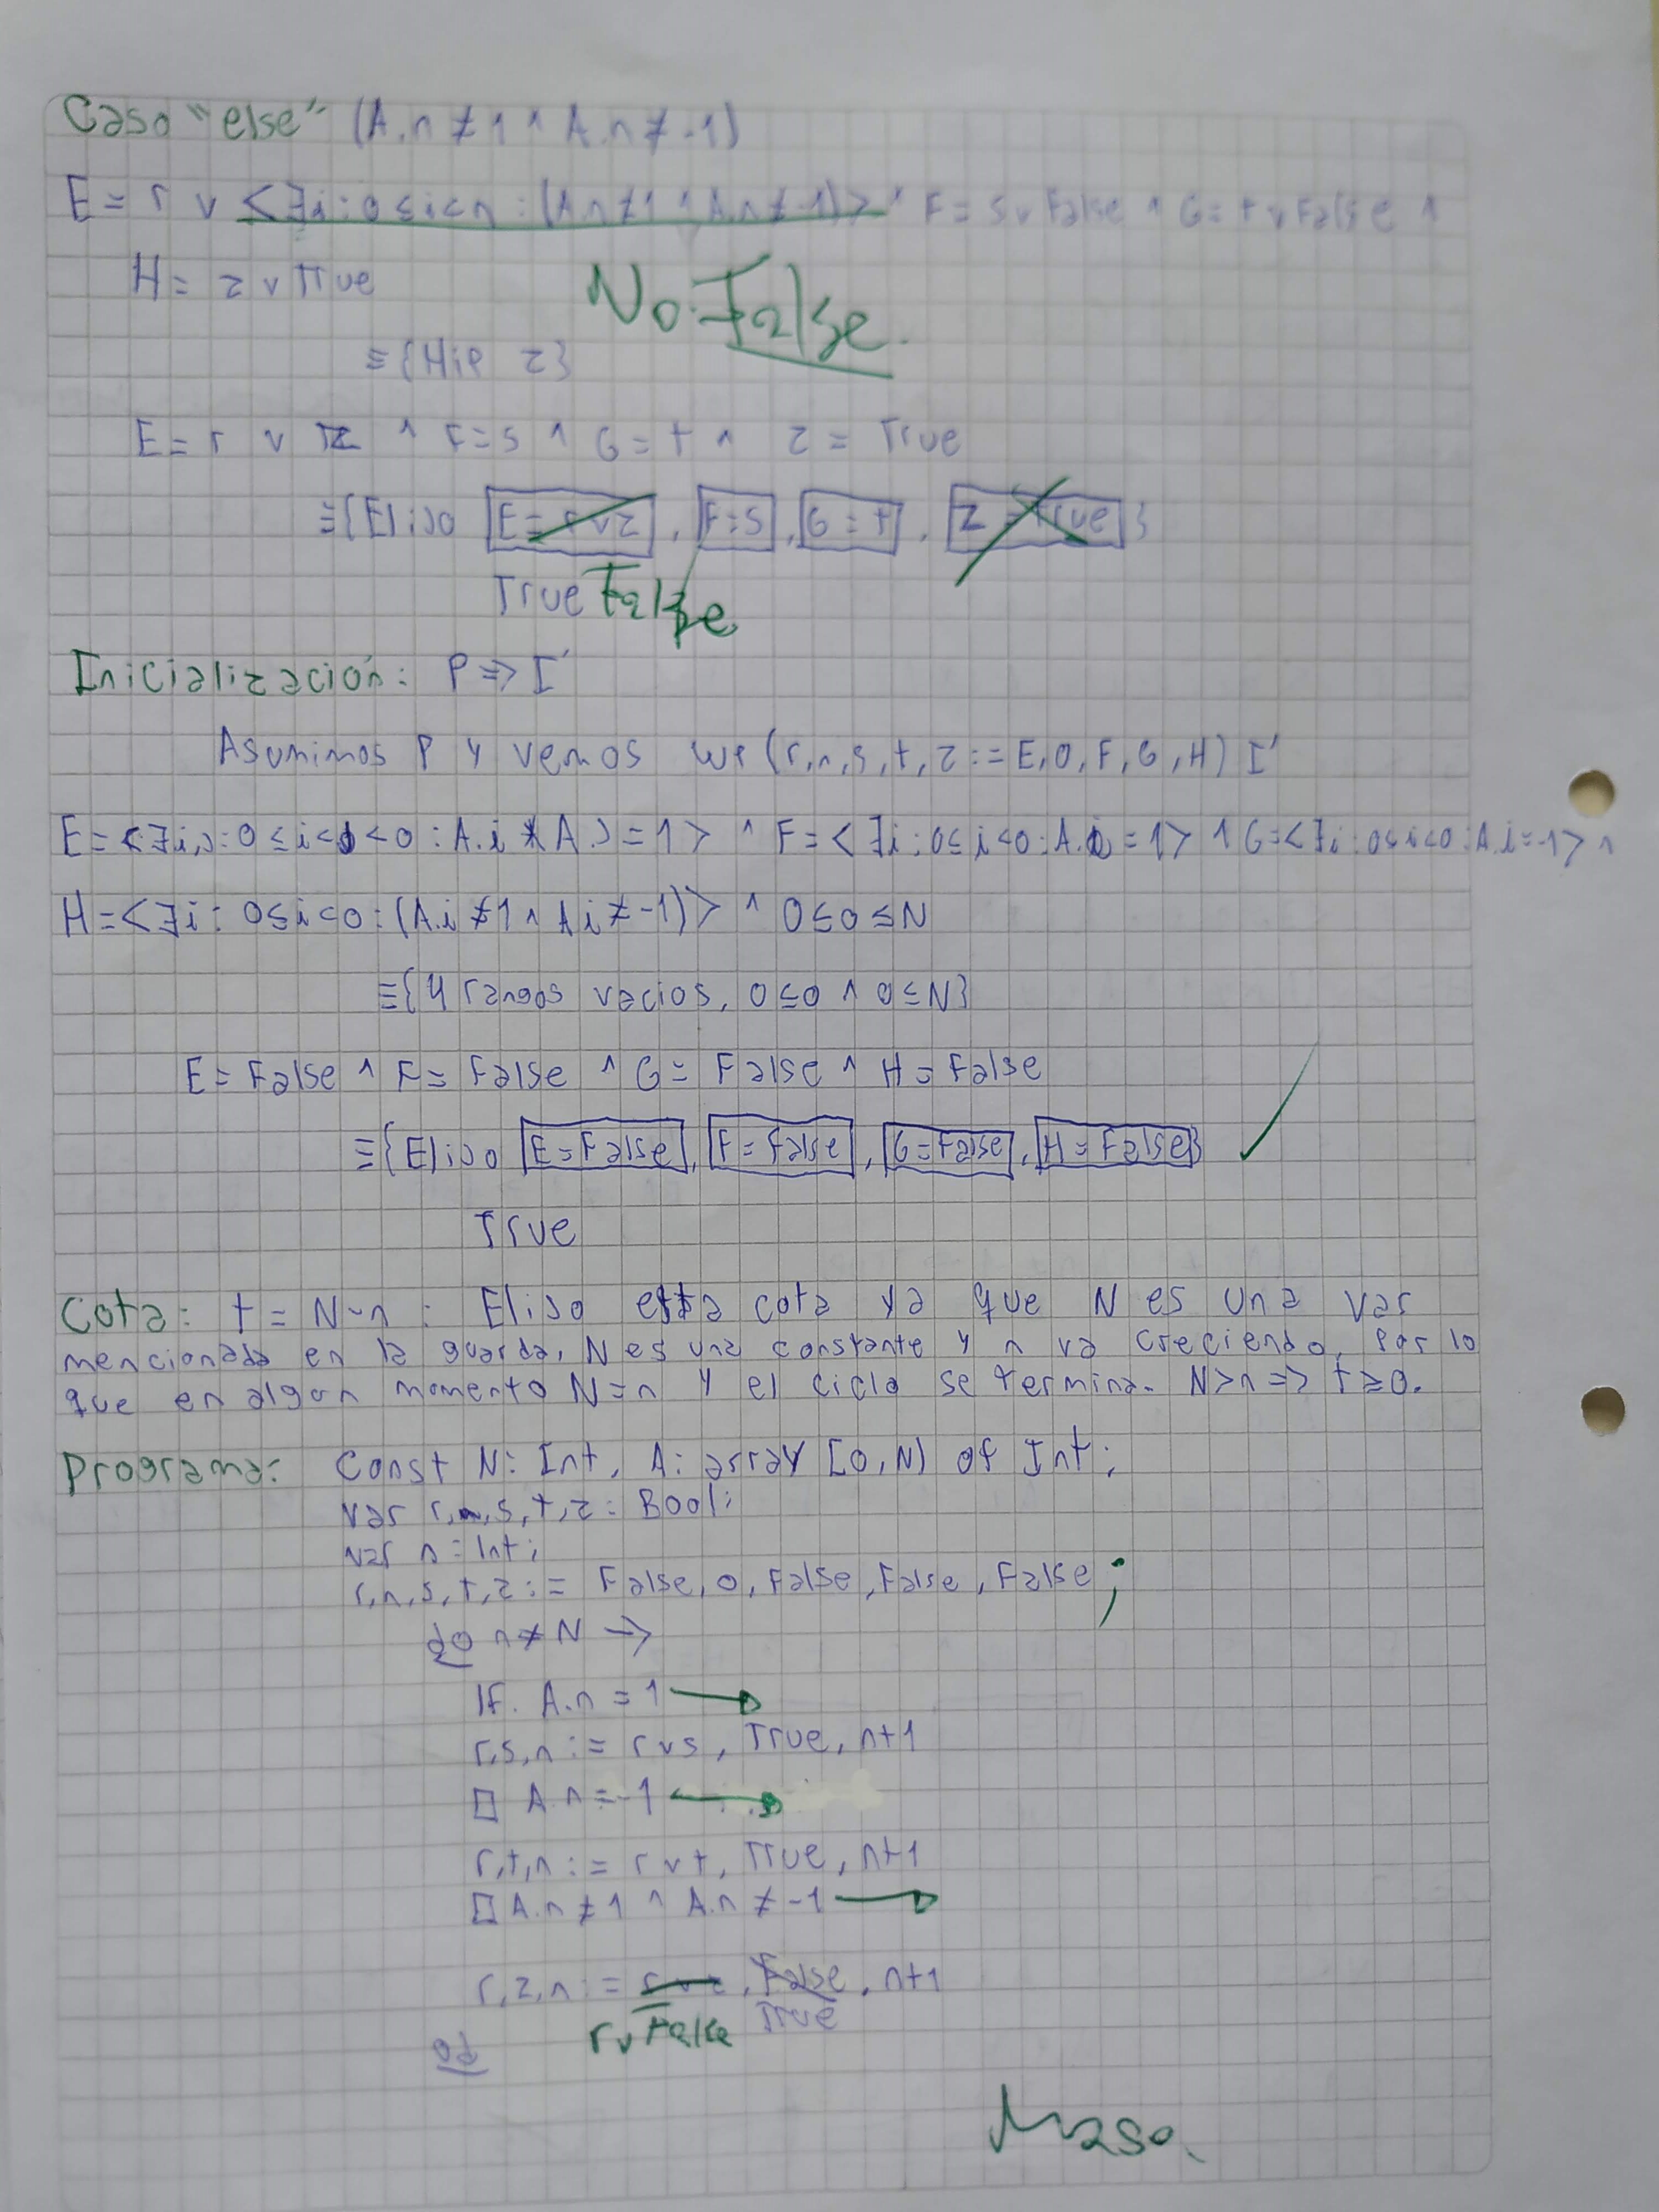 Caso "else" (A.n ≠ 1 ^ A.n ≠ -1)
E = r v <∃i : 0 ≤ i < n : (A.n ≠ 1 ^ A.n ≠ -1)> ^ F = s v False ^ G = t v False ^
H = z v True
No: False.
≡{Hip z}
E = r v z ^ F = s ^ G = t ^ z = True
≡{Elijo E = r v z , F = s , G = t , z = True }
True False
Inicialización: P => I'
Asumimos P y vemos wp (r,n,s,t,z := E,0,F,G,H) I'
E = <∃i,j : 0 ≤ i < j < 0 : A.i * A.j = 1> ^ F = <∃i : 0 ≤ i < 0 : A.i = 1> ^ G = <∃i : 0 ≤ i < 0 : A.i = -1> ^
H = <∃i : 0 ≤ i < 0 : (A.i ≠ 1 ^ A.i ≠ -1)> ^ 0 ≤ 0 ≤ N
≡{4 rangos vacios, 0 ≤ 0 ^ 0 ≤ N}
E = False ^ F = False ^ G = False ^ H = False
≡{Elijo E = False , F = False , G = False , H = False}
True
Cota: t = N - n : Elijo esta cota ya que N es una var
mencionada en la guarda, N es una constante y n va creciendo, por lo
que en algun momento N = n y el ciclo se termina. N > n => t ≥ 0.
Programa: Const N: Int, A: array [0,N) of Int;
Var r, s, t, z : Bool;
var n : Int;
r,n,s,t,z := False, 0, False, False, False ;
do n ≠ N →
If A.n = 1 →
r,s,n := r v s, True, n+1
□ A.n = -1 →
r,t,n := r v t, True, n+1
□ A.n ≠ 1 ^ A.n ≠ -1 →
r,z,n := r v z, False, n+1
r v False True
od
Maso.